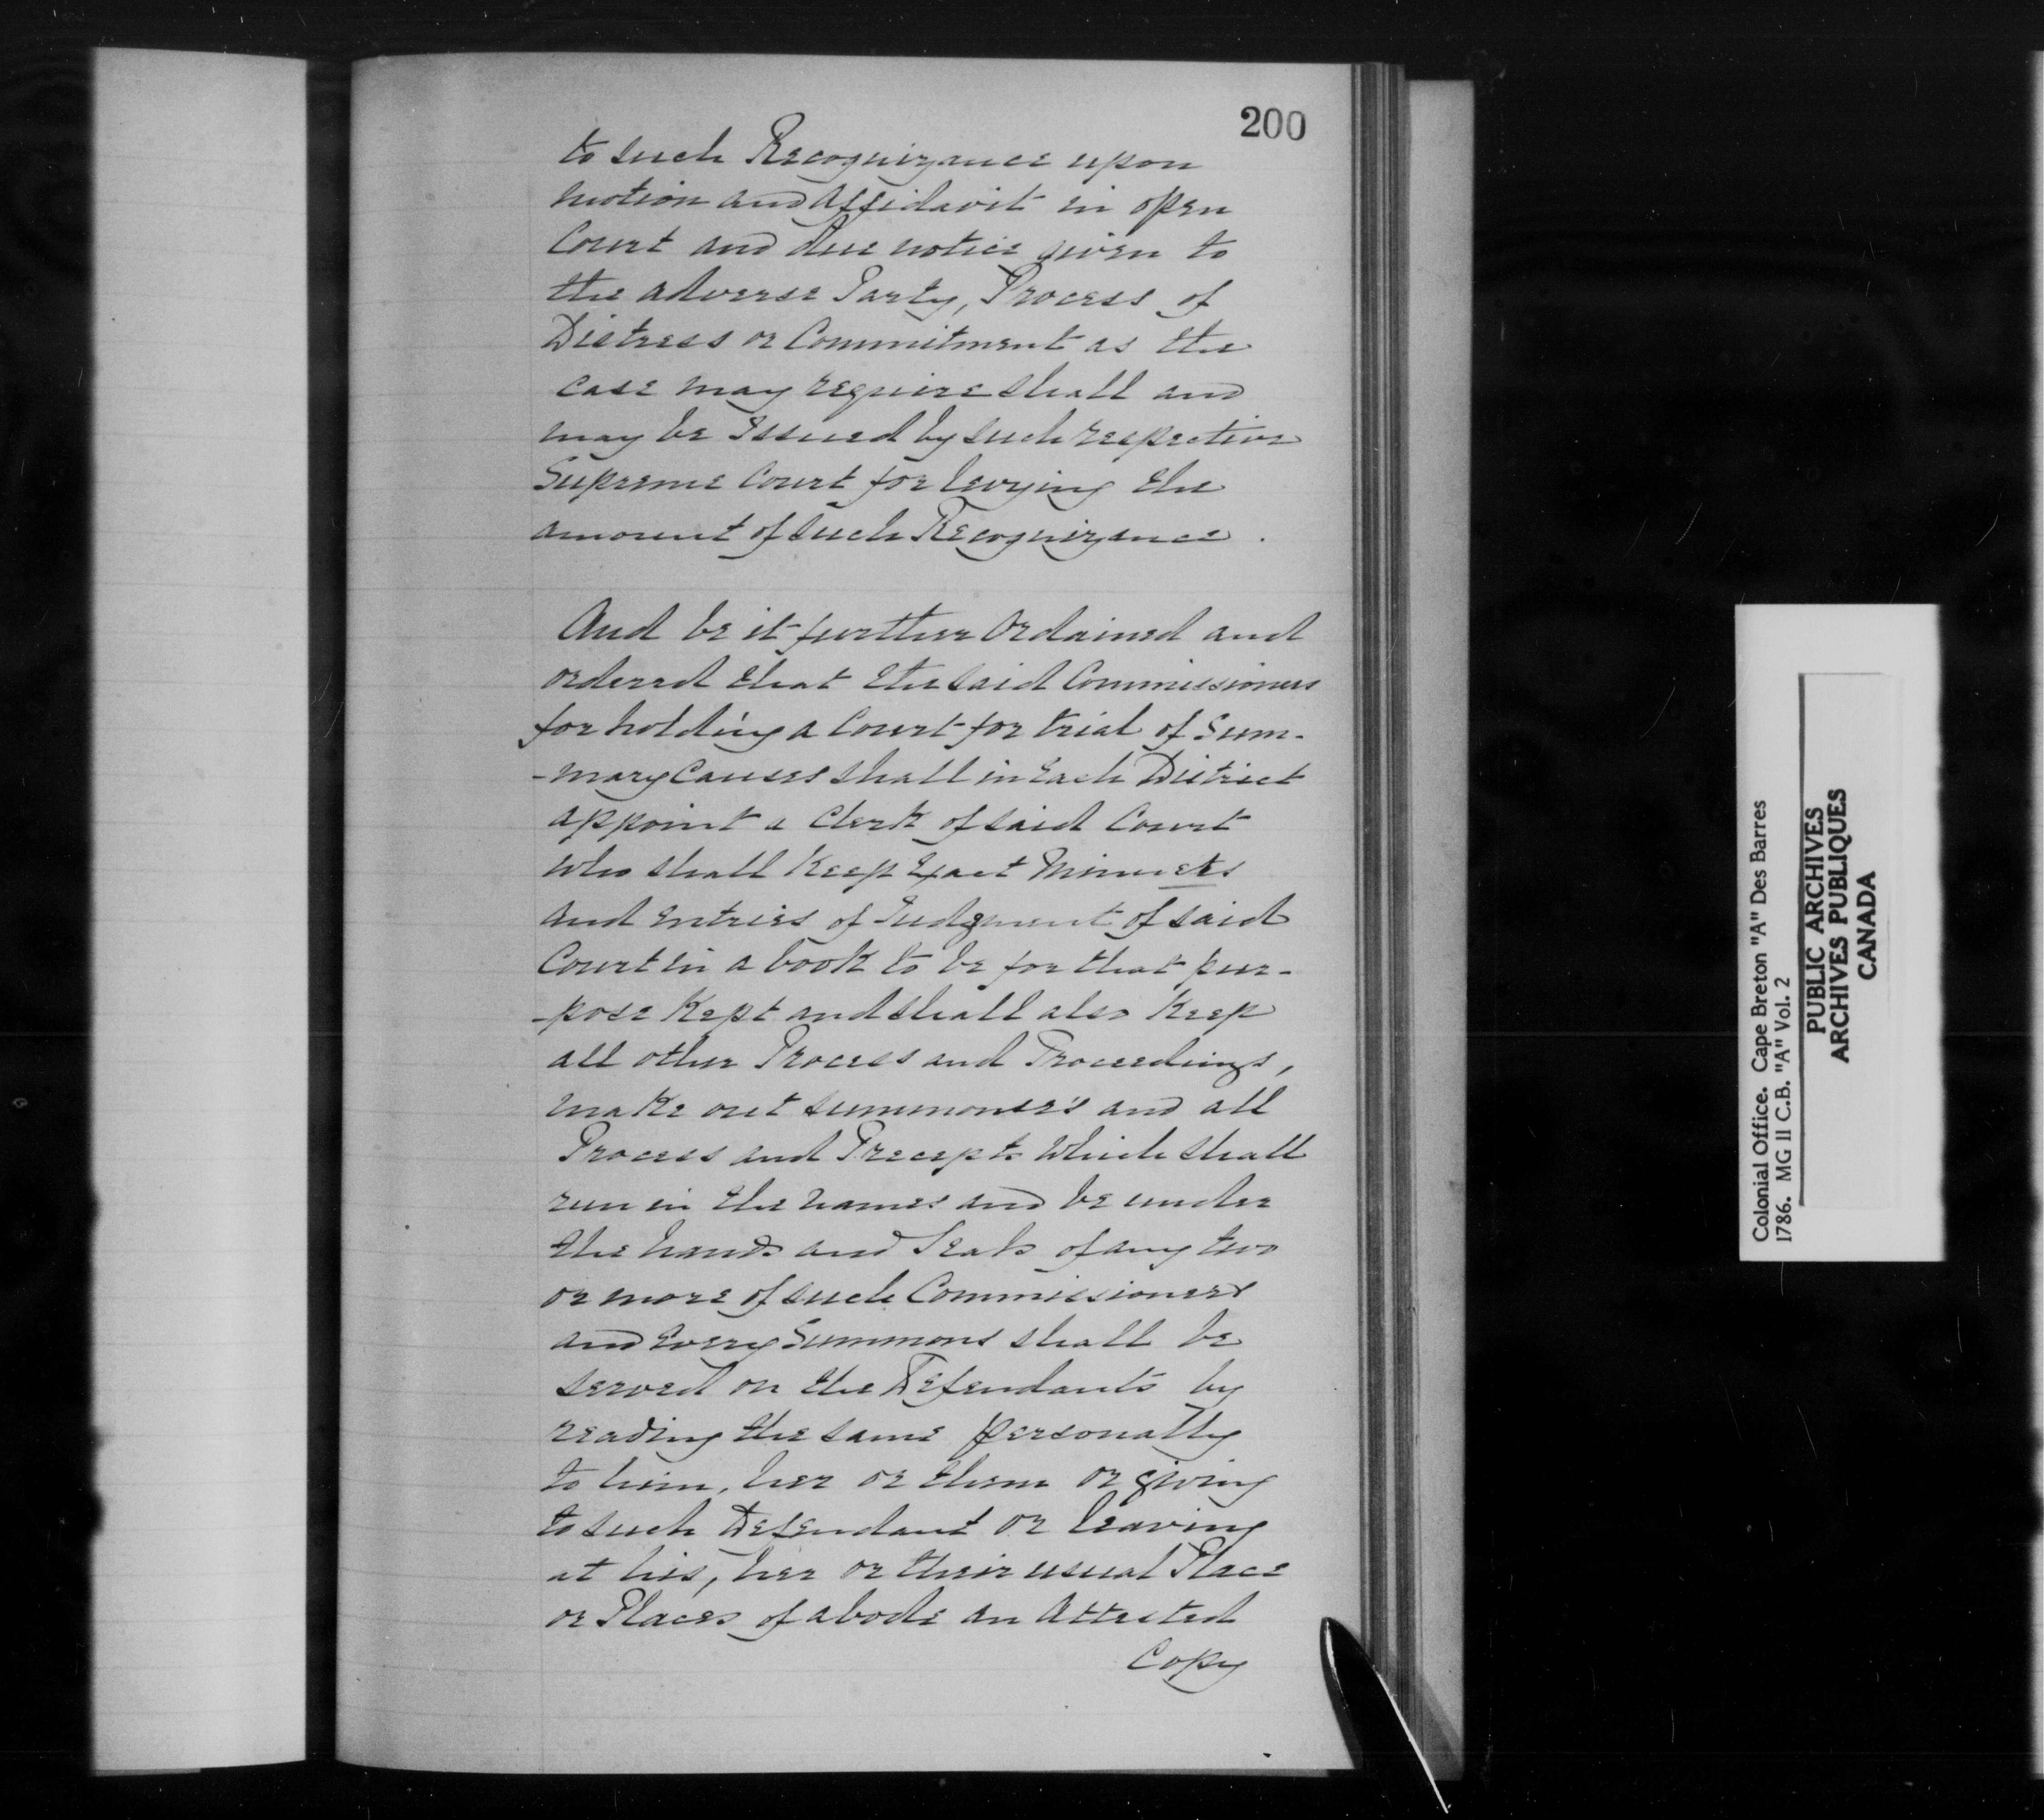 200
to such Recognizance upon
motion and affidavit in open
Court and due notice given to
the adverse Party, Process of
Distress or Commitment as the
case may require shall and
may be Issued by such respective
Supreme Court for levying the
amount of such Recognizance.
And be it further Ordained and
ordered that the said Commissioners
for holding a Court for trial of Sum-
-mary Causes shall in Each District
appoint a Clerk of said Court
who shall Keep Exact Minuets
and entries of Judgment of said
Court in a book to be for that pur-
-pose Kept and shall also Keep
all other Process and Proceedings,
make out summonse's and all
Process and Precepts which shall
run in the names and be under
the hands and Seals of any two
or more of such Commissioners
and Every Summons shall be
served on the Defendants by
reading the same personally
to him, her or them or giving
to such Defendant or leaving
at his, her or their usual Place
or Places of abode an Attested
Copy
Colonial Office. Cape Breton "A" Des Barres
1786. MG 11 C.B. "A" Vol. 2
PUBLIC ARCHIVES
ARCHIVES PUBLIQUES
CANADA